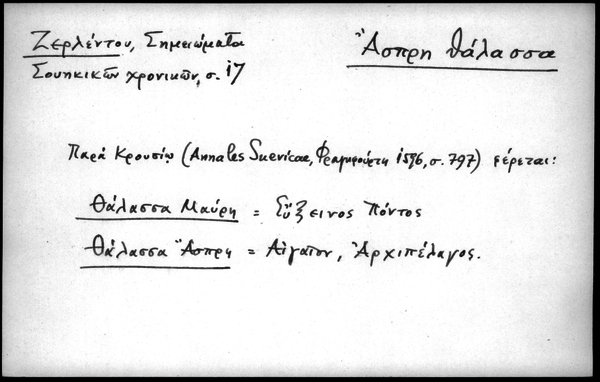 Ζερλέντου, Σημειώματα
Σουηκικῶν χρονικῶν, σ. 17
Ἄσπρη θάλασσα
Παρά Κρουσίῳ (Annales Suevicae, Φραγκφούρτη 1596, σ. 797) φέρεται:
Θάλασσα Μαύρη = Εὔξεινος Πόντος
Θάλασσα Ἄσπρη = Αἰγαῖον, Ἀρχιπέλαγος.